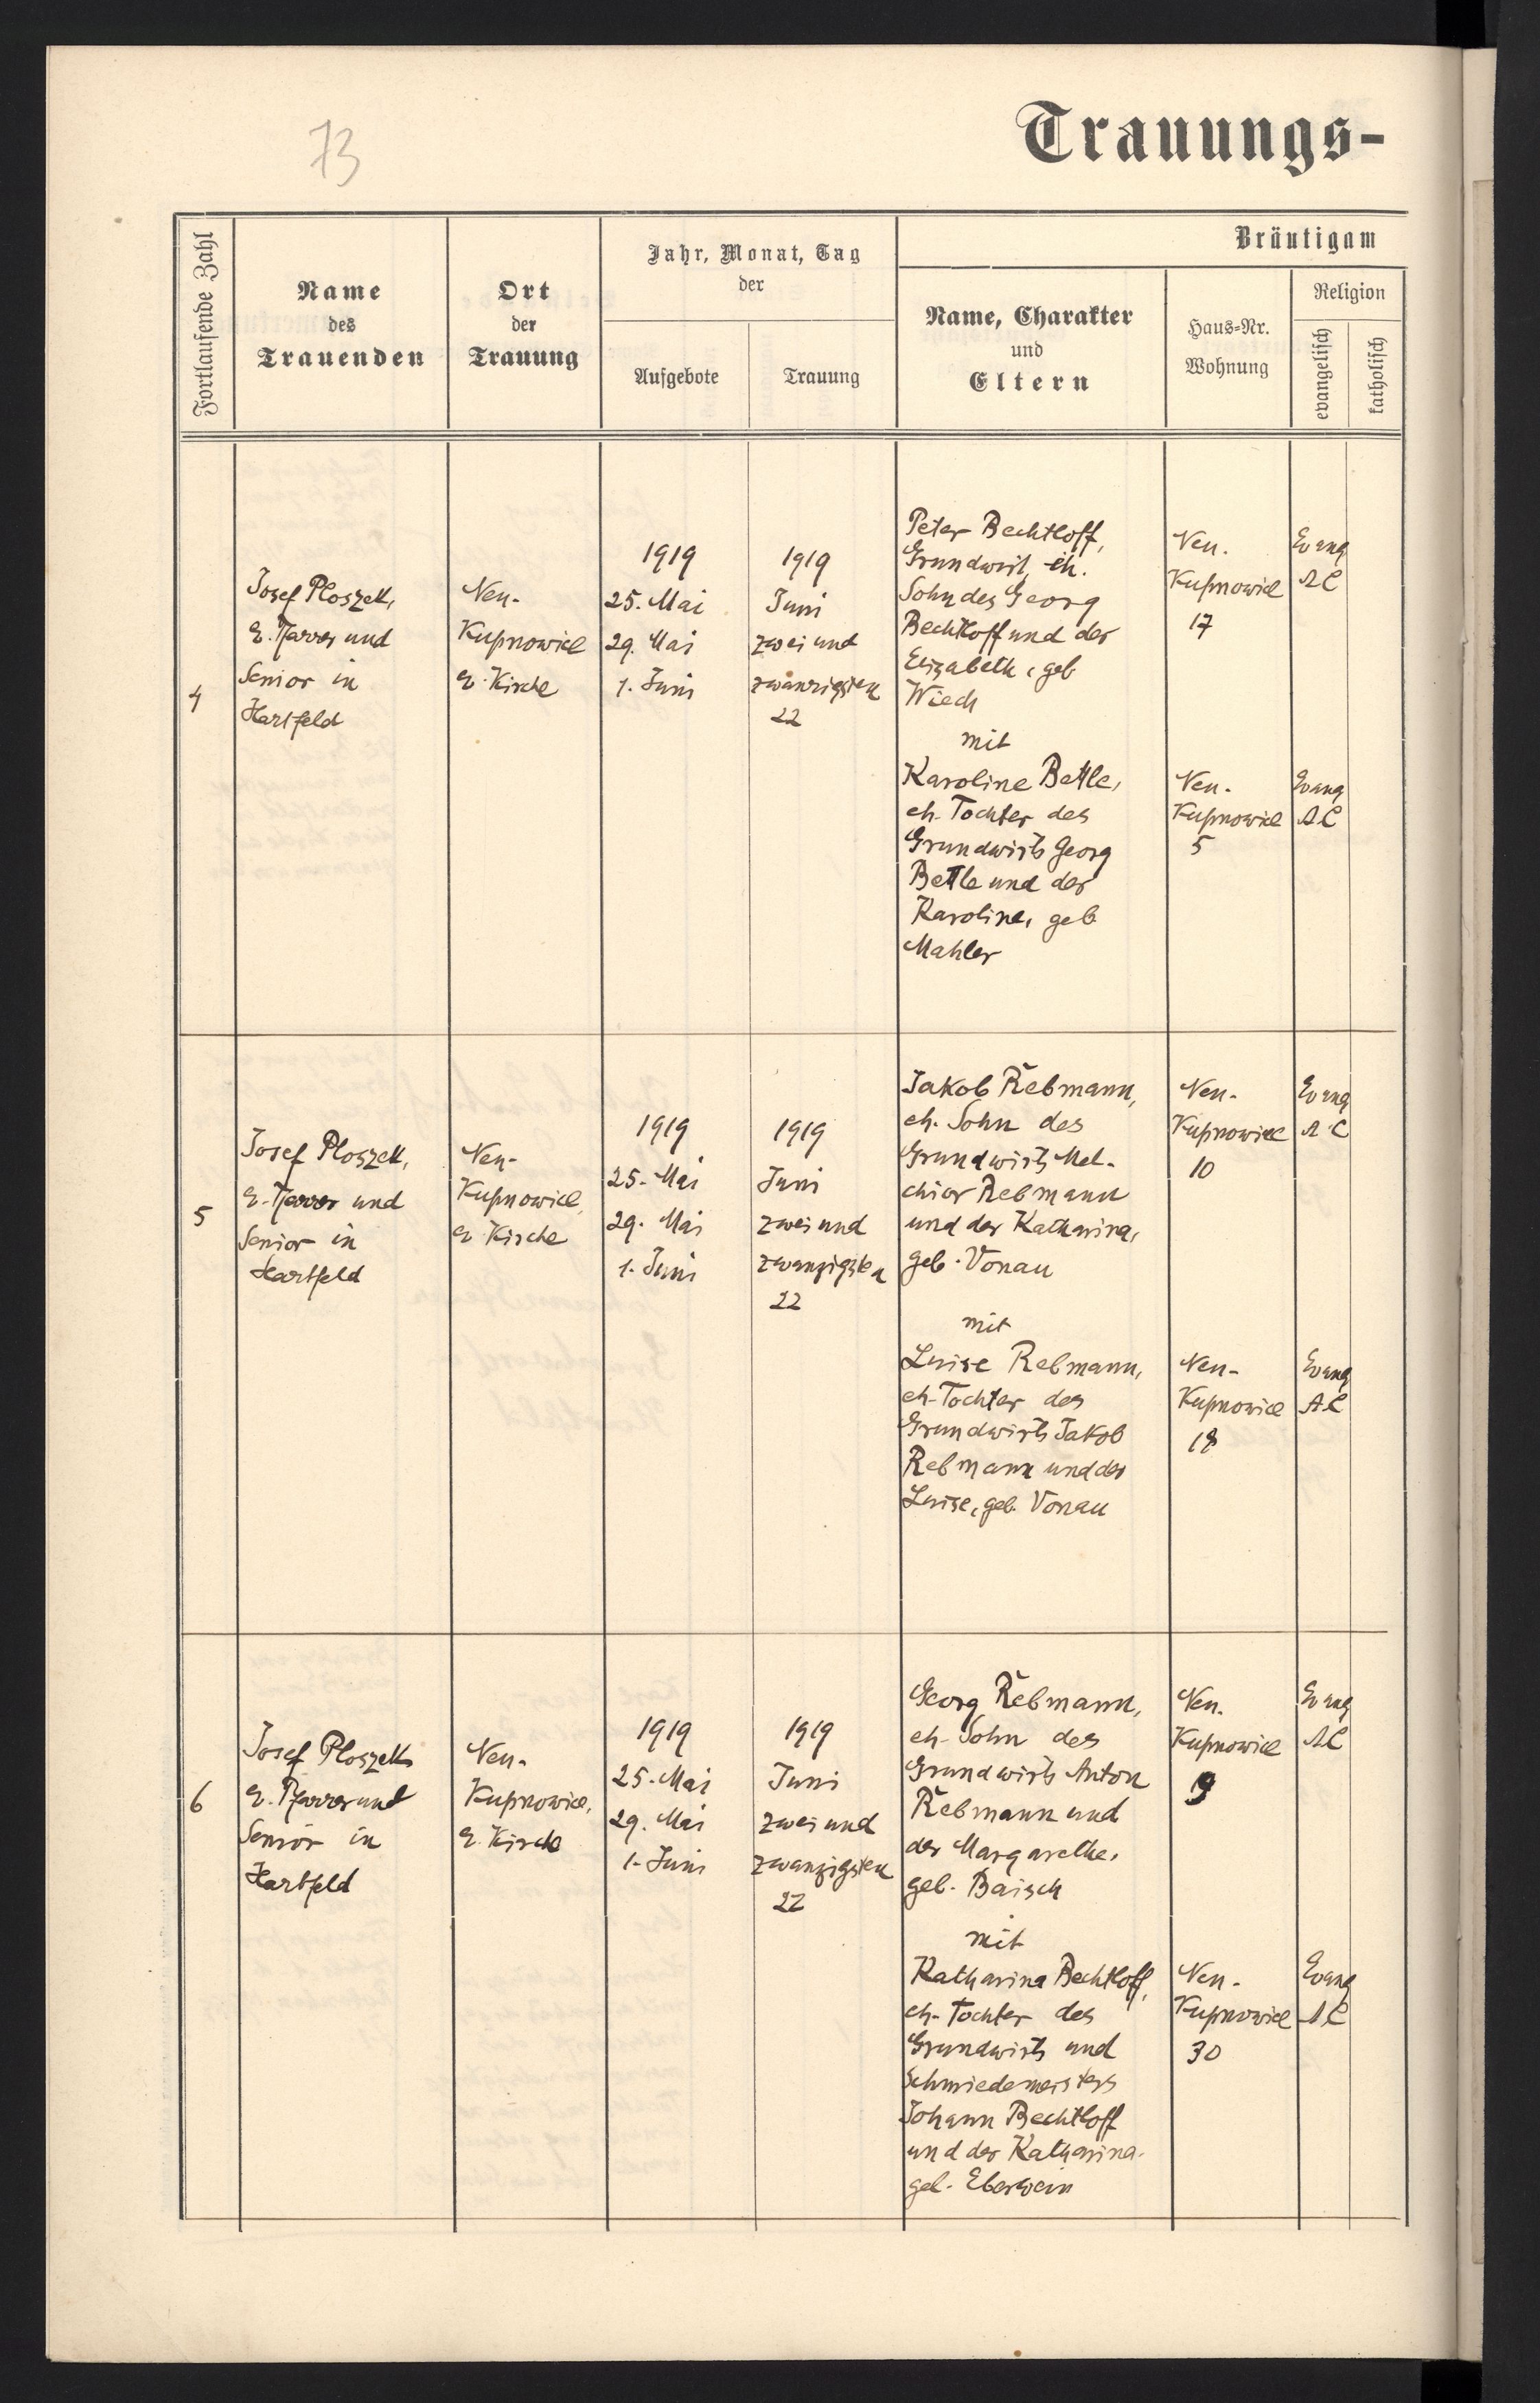 73
Trauungs-
Fortlaufende Zahl
Name
des
Trauenden
Ort
der
Trauung
Jahr, Monat, Tag
der
Aufgebote
Trauung
Bräutigam
Name, Charakter
und
Eltern
Haus-Nr.
Wohnung
Religion
evangelisch
katholisch
4
Josef Ploszek,
E. Pfarrer und
Senior in
Hartfeld
Neu-
Kupnowice
E. Kirche
1919
25. Mai
29. Mai
1. Juni
1919
Juni
zwei und
zwanzigsten
22
Peter Bechtloff,
Grundwirt, eh.
Sohn des Georg
Bechtloff und der
Elizabeth, geb
Wiech
Neu-
Kupnowice
17
Evang
AC
mit
Karoline Bettle,
eh. Tochter des
Grundwirts Georg
Bettle und der
Karoline, geb
Mahler
Neu-
Kupnowice
5
Evang
AC
5
Josef Ploszek,
E. Pfarrer und
Senior in
Hartfeld
Neu-
Kupnowice,
E. Kirche
1919
25. Mai
29. Mai
1. Juni
1919
Juni
zwei und
zwanzigsten
22
Jakob Rebmann,
eh. Sohn des
Grundwirts Mel-
chior Rebmann
und der Katharina,
geb. Vonau
Neu-
Kupnowice
10
Evang
AC
mit
Luise Rebmann,
eh. Tochter des
Grundwirts Jakob
Rebmann und der
Luise, geb. Vonau
Neu-
Kupnowice
18
Evang
AC
6
Josef Ploszek
E. Pfarrer und
Senior in
Hartfeld
Neu-
Kupnowice,
E. Kirche
1919
25. Mai
29. Mai
1. Juni
1919
Juni
zwei und
zwanzigsten
22
Georg Rebmann,
eh. Sohn des
Grundwirts Anton
Rebmann und
der Margarethe,
geb. Baisch
Neu-
Kupnowice
9
Evang
AC
mit
Katharina Bechtloff,
eh. Tochter des
Grundwirts und
Schmiedemeisters
Johann Bechtloff
und der Katharina
geb. Eberwein
Neu-
Kupnowice
30
Evang
AC